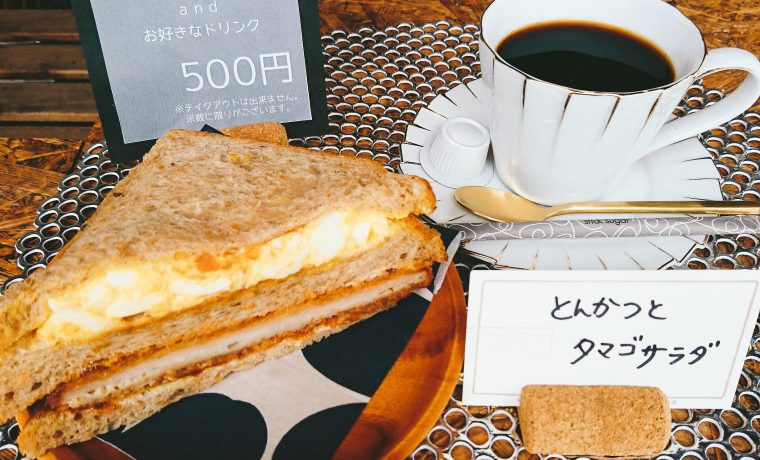 and
お好きなドリンク
500円
※テイクアウトは出来ません。
※数に限りがございます。
stick sugar
とんかつと
タマゴサラダ